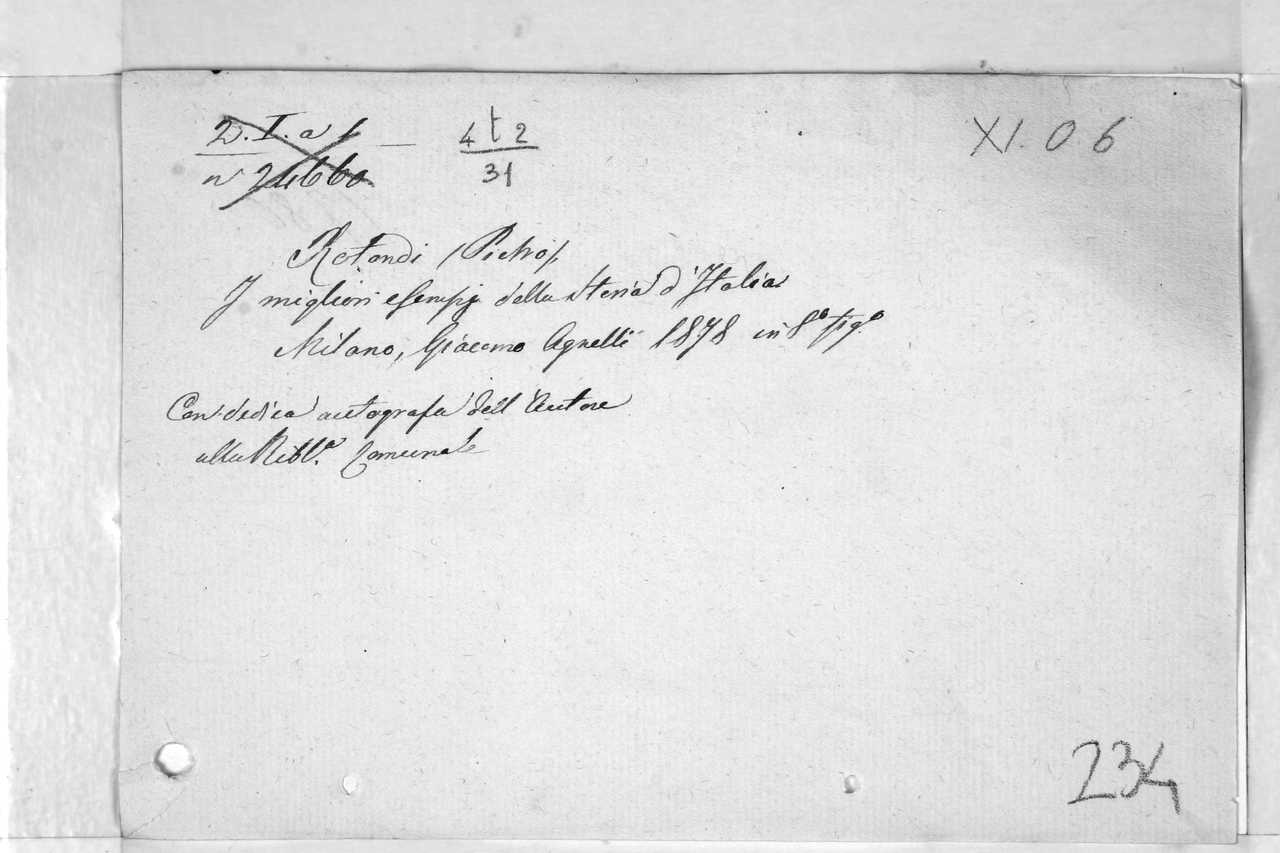 2. I. a 1
4 t 2
XI. O 6
n° 24660
31
Rotondi (Pietro)
I migliori esempj della storia d'Italia
Milano, Giacomo Agnelli 1878 in 8° fig°
Con dedica autografa dell'Autore
alla Bibl.ª Comunale
234